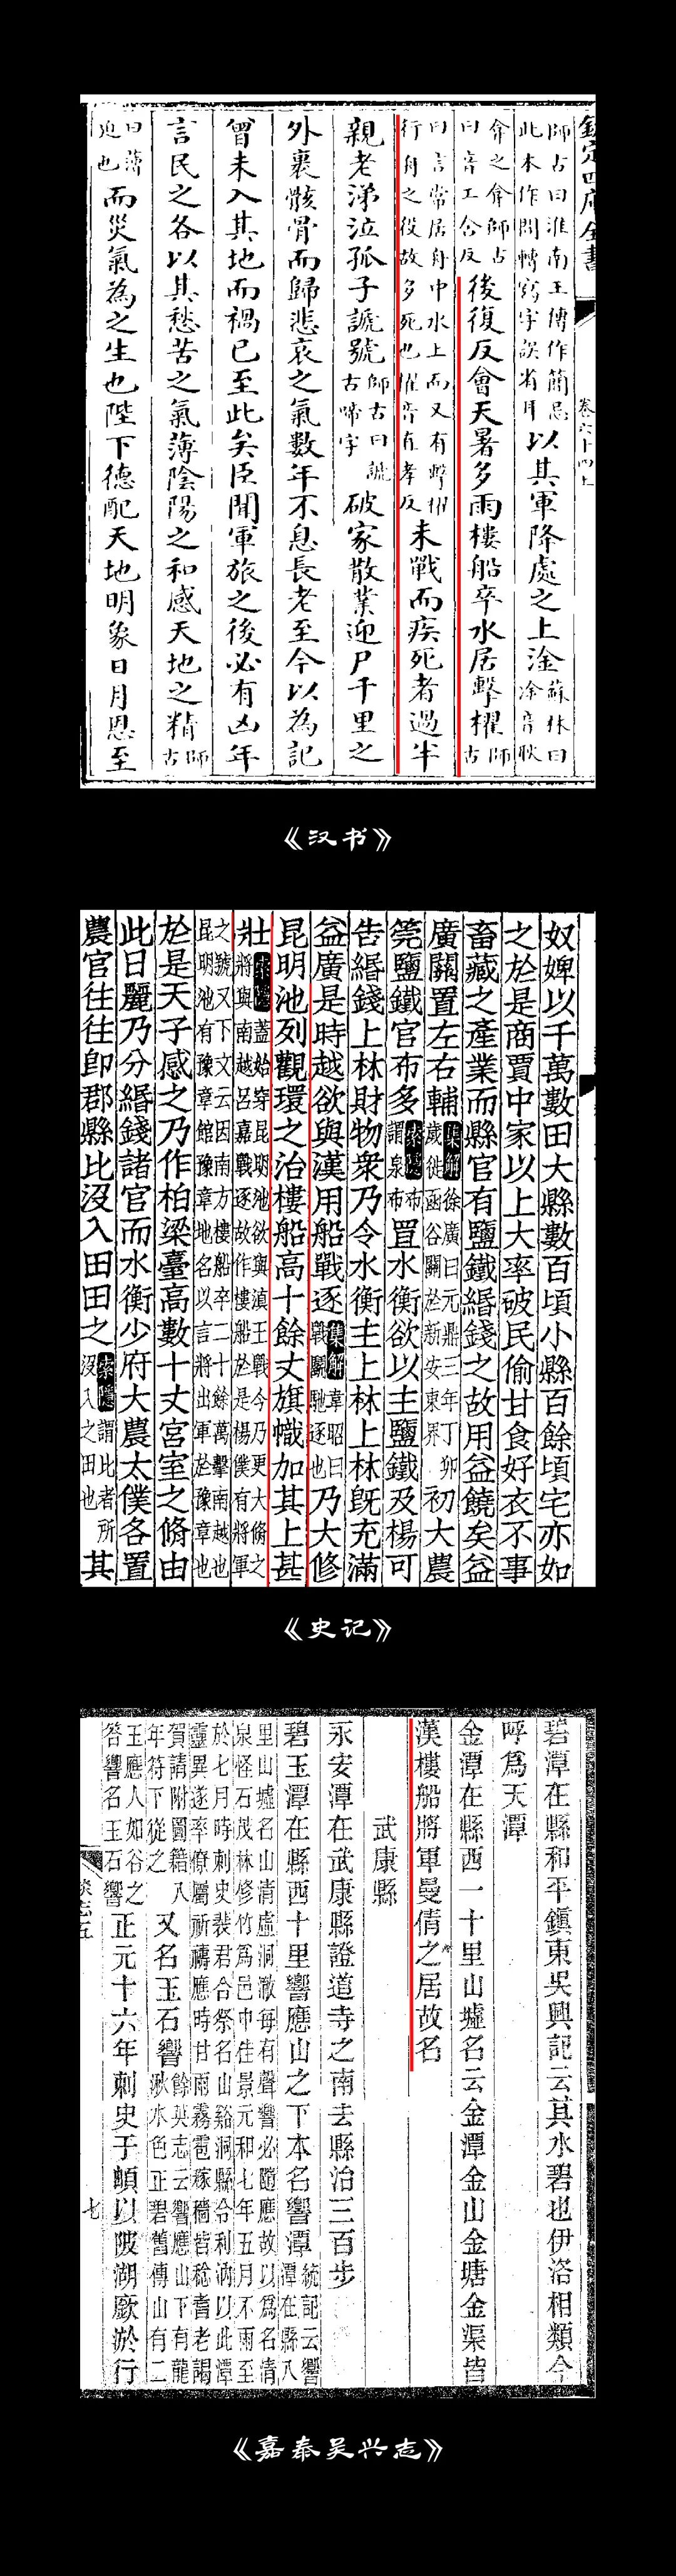 欽定四庫全書 卷六十四上
師古曰淮南王傳作簡忌此本作間轉寫字誤省耳以其軍降處之上淦蘇林曰淦音耿
弇之弇師古曰音工含反後復反會天暑多雨樓船卒水居擊櫂師古
曰言常居舟中水上而又有擊櫂行舟之役故多死也櫂音直孝反未戰而疾死者過半
親老涕泣孤子諕號師古曰諕古啼字破家散業迎尸千里之
外裹骸骨而歸悲哀之氣數年不息長老至今以為記
曾未入其地而禍已至此矣臣聞軍旅之後必有凶年
言民之各以其愁苦之氣薄陰陽之和感天地之精師古
曰薄迫也而災氣為之生也陛下德配天地明象日月恩至
《汉书》
奴婢以千萬數田大縣數百頃小縣百餘頃宅亦如
之於是商賈中家以上大率破民偷甘食好衣不事
畜藏之產業而縣官有鹽鐵緡錢之故用益饒矣益
廣關置左右輔集解徐廣曰元鼎三年丁卯歲徙函谷關於新安東界初大農
筦鹽鐵官布多索隱布謂泉布置水衡欲以主鹽鐵及楊可
告緡錢上林財物衆乃令水衡主上林上林旣充滿
益廣是時越欲與漢用船戰逐集解韋昭曰戰鬭馳逐也乃大修
昆明池列觀環之治樓船高十餘丈旗幟加其上甚
壯索隱蓋始穿昆明池欲與滇王戰今乃更大脩之將與南越呂嘉戰逐故作樓船於是楊僕有將軍
之號又下文云因南方樓船卒二十餘萬擊南越也昆明池有豫章館豫章地名以言將出軍於豫章也
於是天子感之乃作柏梁臺高數十丈宮室之脩由
此日麗乃分緡錢諸官而水衡少府大農太僕各置
農官往往卽郡縣比沒入田田之索隱謂比者所沒入之田也其
《史记》
碧潭在縣和平鎮東吳興記云其水碧也伊洛相類今
呼爲天潭
金潭在縣西一十里山墟名云金潭金山金塘金渠皆
漢樓船將軍曼倩之居故名
武康縣
永安潭在武康縣證道寺之南去縣治三百步
碧玉潭在縣西十里響應山之下本名響潭統記云響潭在縣八
里山墟名山淸虛洞澈每有聲響必隨應故以爲名淸泉怪石茂林修竹爲邑中佳景元和七年五月不雨至
於七月時刺史裴君合祭名山谿洞縣令利汭以此潭靈異遂率僚屬祈禱應時甘雨霧雹稼穡皆稔耆老謁
賀請附圖籍八年符下從之又名玉石響餘英志云響應山下有龍湫水色正碧舊傳山有二
玉應人如谷之答響名玉石響正元十六年刺史于頔以陂湖厥淤行
談志五
七
《嘉泰吴兴志》